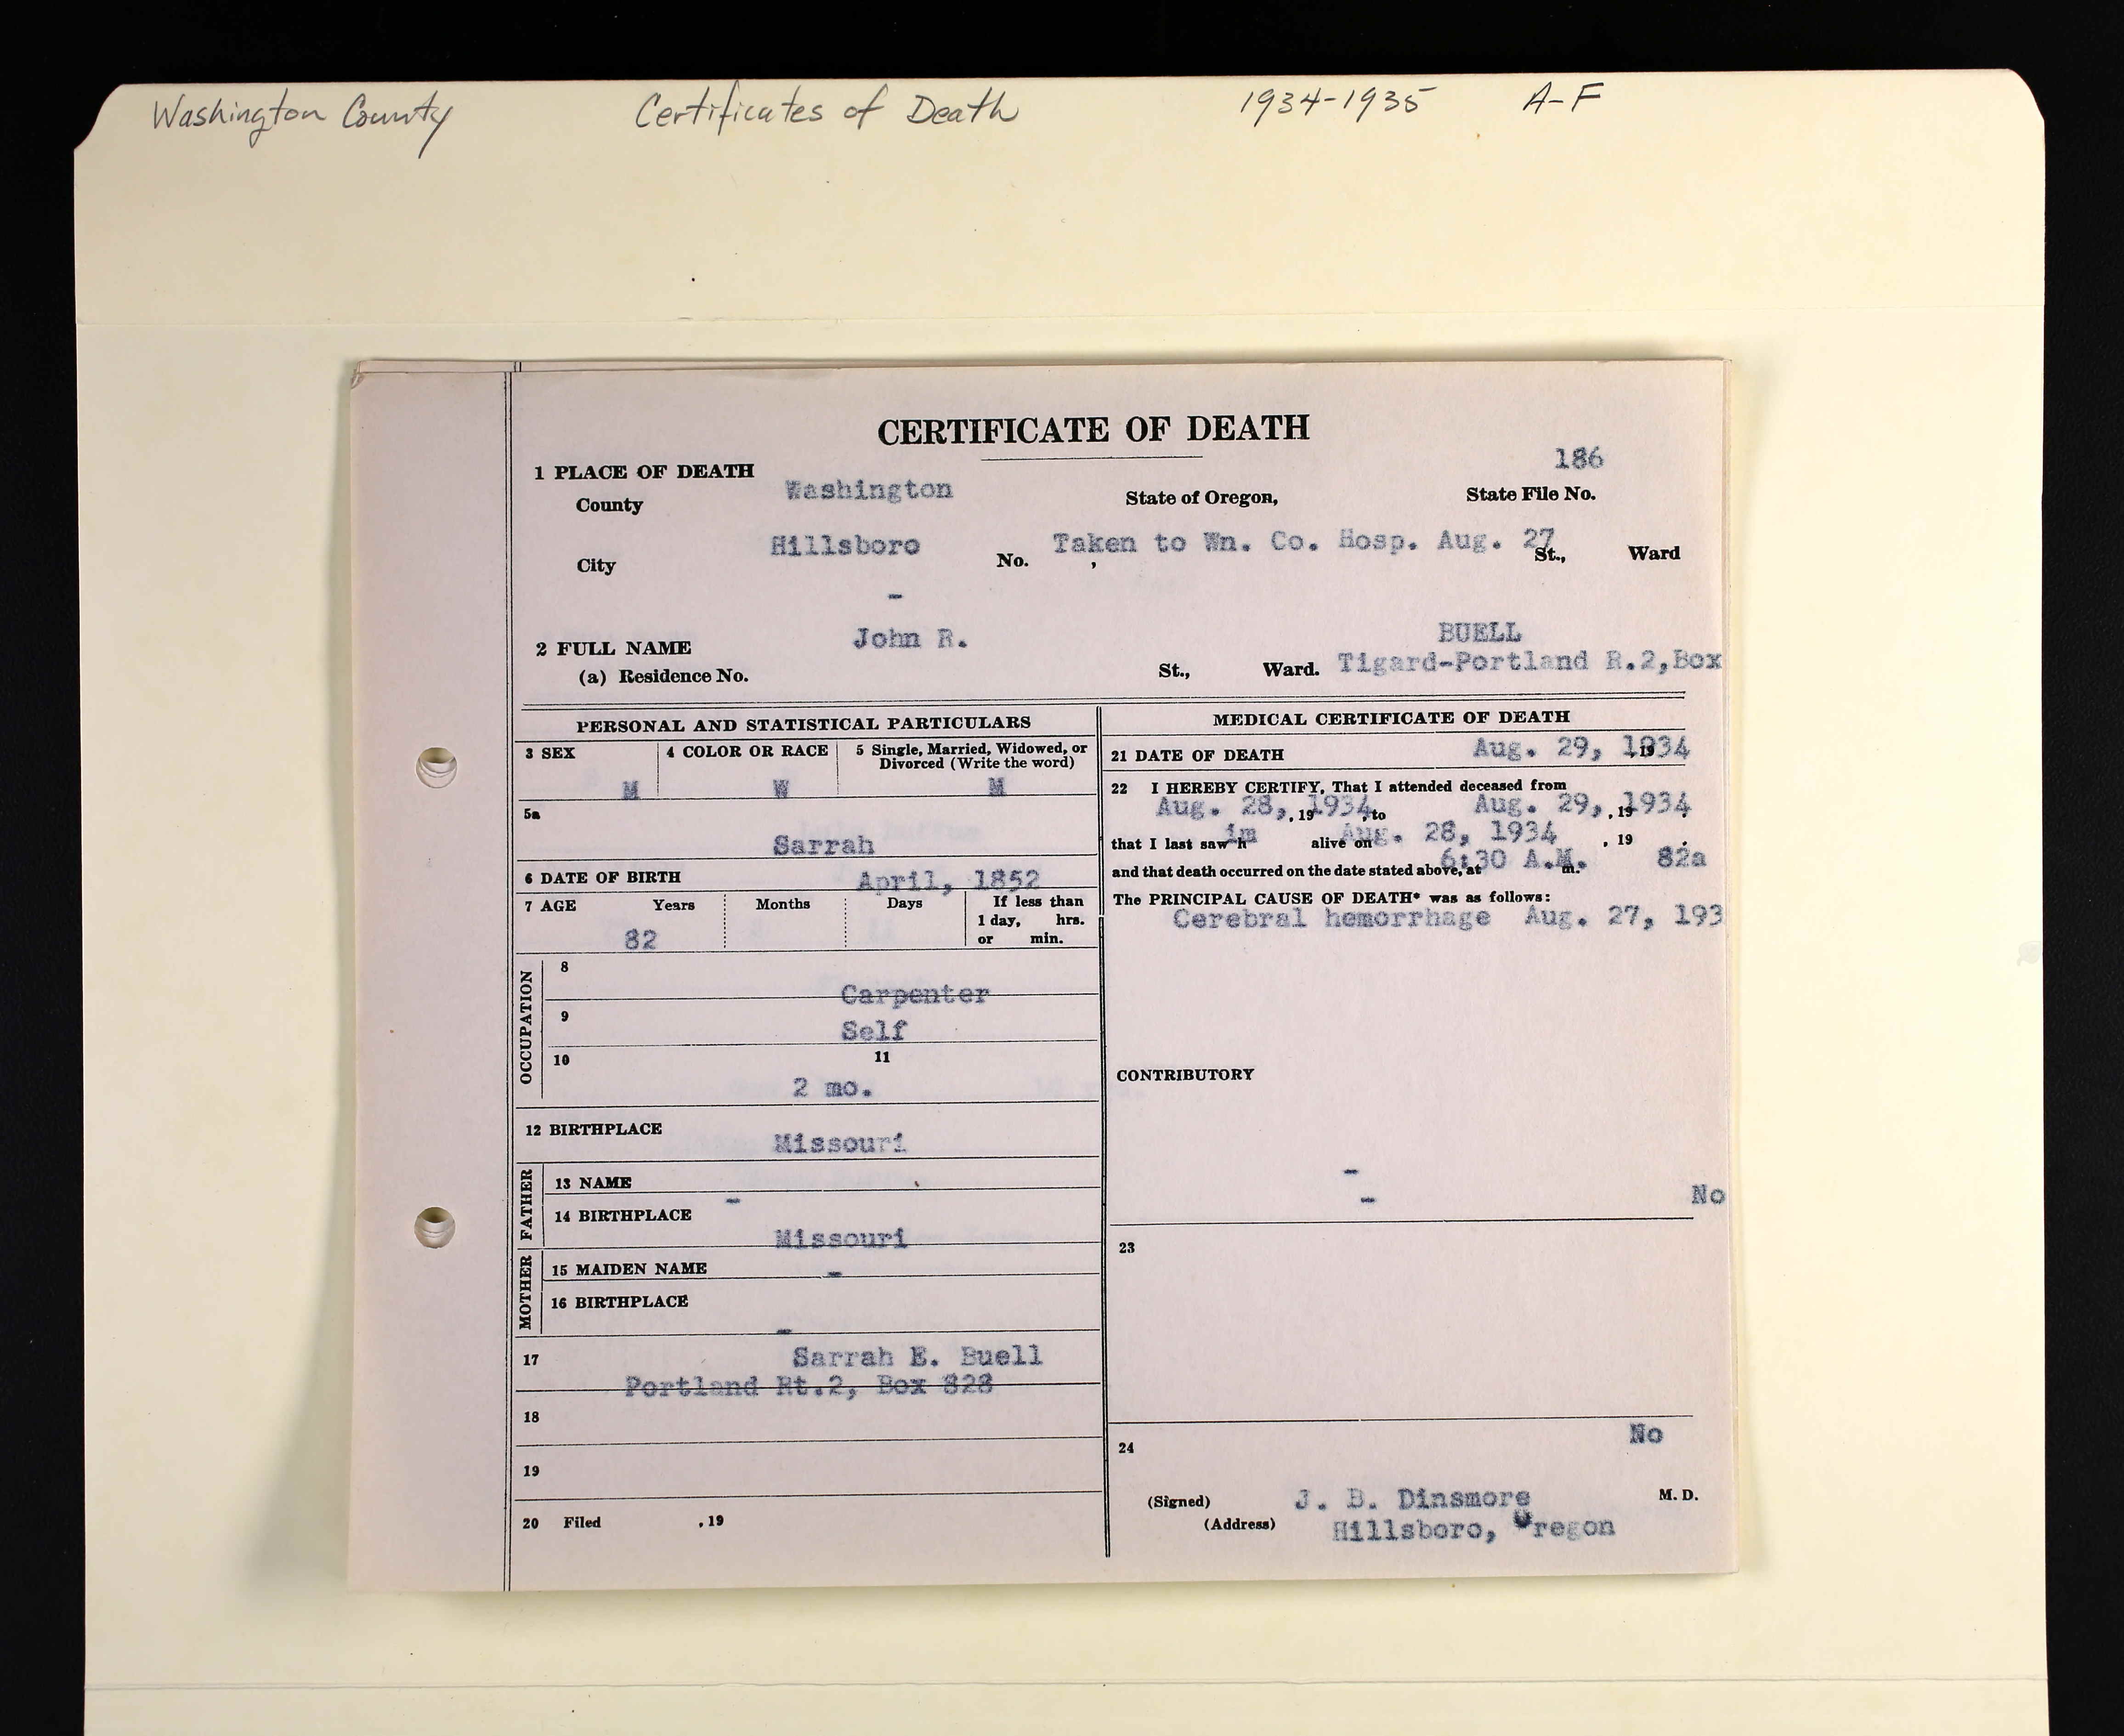 Washington County Certificates of Death 1934-1935 A-F
CERTIFICATE OF DEATH
186
1 PLACE OF DEATH
County Washington State of Oregon, State File No.
City Hillsboro No. Taken to Wn. Co. Hosp. Aug. 27 St., Ward
-
2 FULL NAME John R. BUELL
(a) Residence No. St., Ward. Tigard-Portland R.2,Box
PERSONAL AND STATISTICAL PARTICULARS
3 SEX 4 COLOR OR RACE 5 Single, Married, Widowed, or
Divorced (Write the word)
M W M
5a
Sarrah
6 DATE OF BIRTH April, 1852
7 AGE Years Months Days If less than
1 day, hrs.
or min.
82
OCCUPATION
8
Carpenter
9
Self
10 11
2 mo.
12 BIRTHPLACE
Missouri
FATHER
13 NAME
-
14 BIRTHPLACE
Missouri
MOTHER
15 MAIDEN NAME -
16 BIRTHPLACE
-
17 Sarrah E. Buell
Portland Rt.2, Box 828
18
19
20 Filed , 19
MEDICAL CERTIFICATE OF DEATH
21 DATE OF DEATH Aug. 29, 1934 19
22 I HEREBY CERTIFY, That I attended deceased from
Aug. 28, 1934 , 19 , to Aug. 29, 1934 , 19 ,
that I last saw h im alive on Aug. 28, 1934 , 19 ,
and that death occurred on the date stated above, at 6:30 A.M. m. 82a
The PRINCIPAL CAUSE OF DEATH* was as follows:
Cerebral hemorrhage Aug. 27, 193
CONTRIBUTORY
-
- No
23
No
24
(Signed) J. B. Dinsmore M. D.
(Address) Hillsboro, Oregon